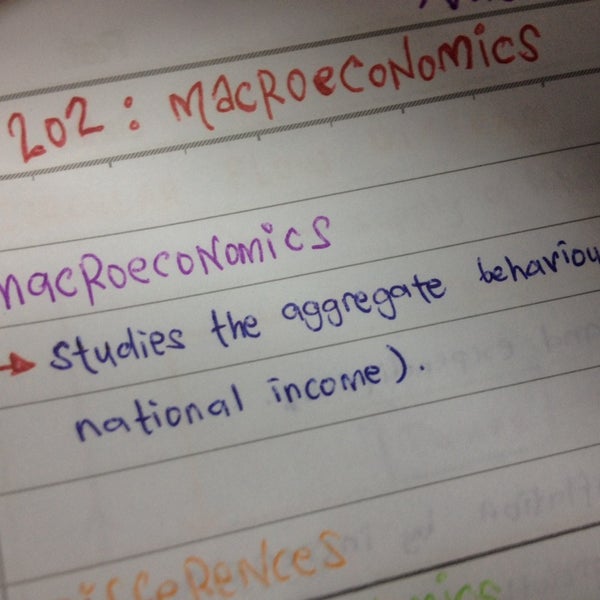 202: MacRoecoNomics
MacRoecoNomics
→ studies the aggregate behaviou
national income).